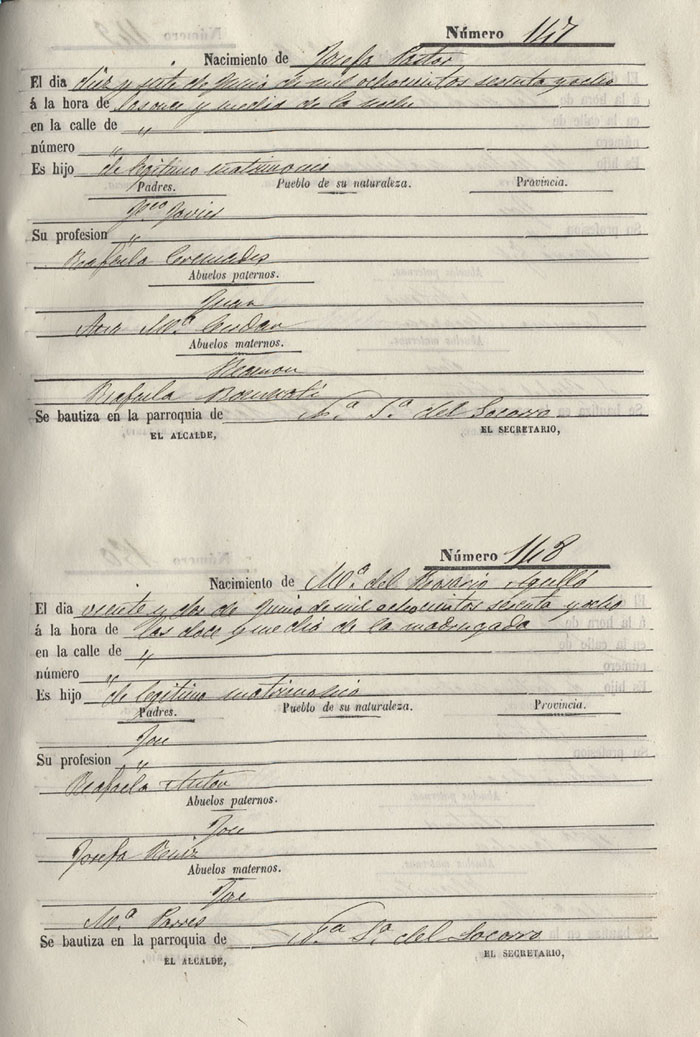 Número 147
Nacimiento de Josefa Pastor
El dia diez y siete de Junio de mil ochocientos sesenta y ocho
á la hora de las once y media de la noche
en la calle de "
número "
Es hijo de legitimo matrimonio
Padres. Pueblo de su naturaleza. Provincia.
Su profesion "
Rafaela
Abuelos paternos.
Juan
Ana Mª
Abuelos maternos.
Ramon
Rafaela
Se bautiza en la parroquia de Nª Sª del Socorro
EL ALCALDE, EL SECRETARIO,
Número 148
Nacimiento de Mª del Rosario Agulló
El dia veinte y dos de Junio de mil ochocientos sesenta y ocho
á la hora de las doce y media de la madrugada
en la calle de "
número "
Es hijo de legitimo matrimonio
Padres. Pueblo de su naturaleza. Provincia.
Jose
Su profesion "
Rafaela Anton
Abuelos paternos.
Jose
Josefa Ruiz
Abuelos maternos.
Jose
Mª Parres
Se bautiza en la parroquia de Nª Sª del Socorro
EL ALCALDE, EL SECRETARIO,